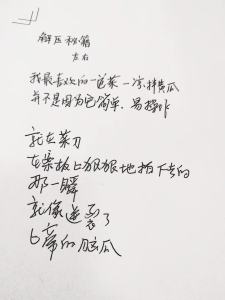 解压秘籍
左右
我最喜欢的一道菜一凉拌黄瓜
并不是因为它简单、易操作
就在菜刀
在案板上狠狠地拍下去的
那一瞬
就像逆袭了
的傻瓜